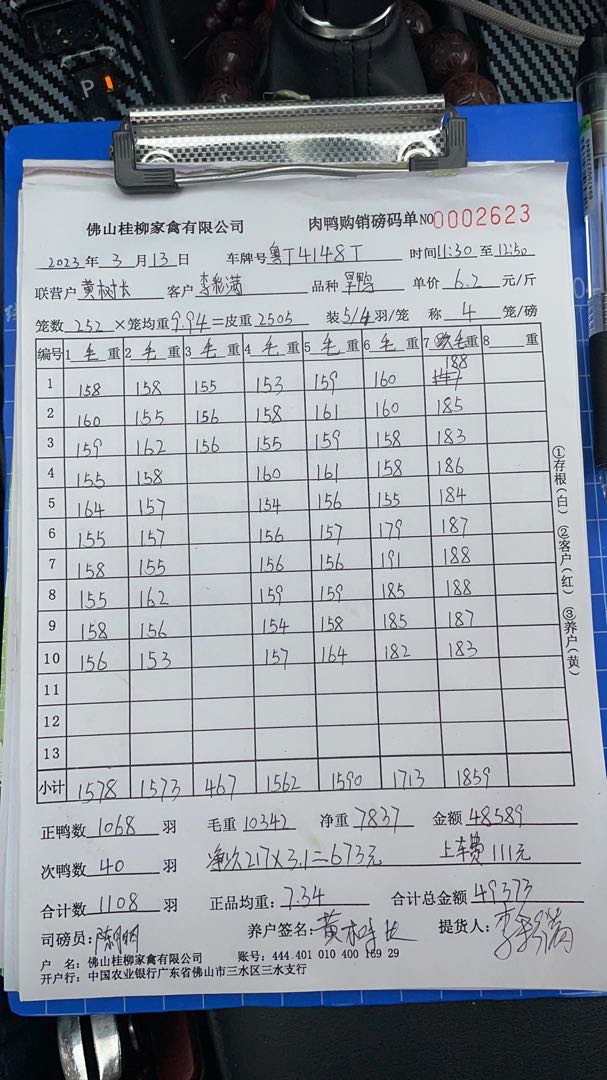 P
佛山桂柳家禽有限公司 肉鸭购销磅码单 NO 0002623
2023 年 3 月 13 日 车牌号 粤T4148T 时间 11:30 至 12:50
联营户 黄树长 客户 李彩满 品种 旱鸭 单价 6.2 元/斤
笼数 252 ×笼均重 9.94 =皮重 2505 装 5/4 羽/笼 称 4 笼/磅
编号 1 毛 重 2 毛 重 3 毛 重 4 毛 重 5 毛 重 6 毛 重 7 毛重 8 重
1 158 158 155 153 159 160 188
2 160 155 156 158 161 160 185
3 159 162 156 155 159 158 183
4 155 158 160 161 158 186
5 164 157 154 156 155 184
6 155 157 156 157 179 187
7 158 155 156 156 191 188
8 155 162 159 159 185 188
9 158 156 154 158 185 187
10 156 153 157 164 182 183
11
12
13
小计 1578 1573 467 1562 1590 1713 1859
①存根(白) ②客户(红) ③养户(黄)
正鸭数 1068 羽 毛重 10342 净重 7837 金额 48589
次鸭数 40 羽 净次217×3.1=673元 上车费 111元
合计数 1108 羽 正品均重: 7.34 合计总金额 49373
司磅员: 养户签名: 黄树长 提货人: 李彩满
户 名: 佛山桂柳家禽有限公司 账号: 444 401 010 400 169 29
开户行: 中国农业银行广东省佛山市三水区三水支行